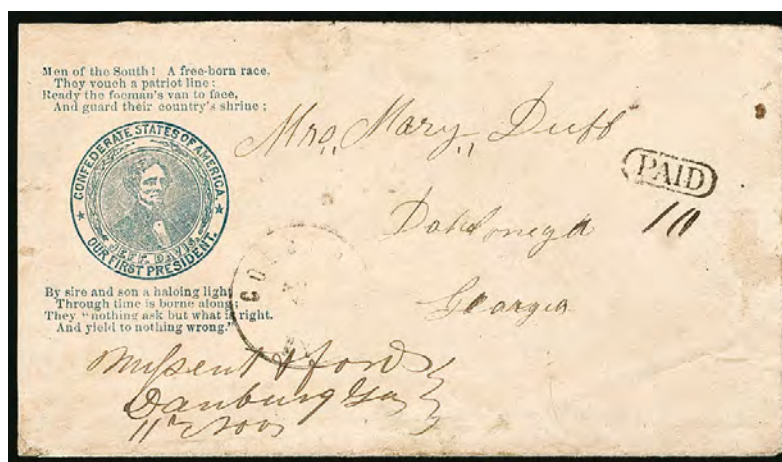 Men of the South! A free-born race,
They vouch a patriot line;
Ready the foeman's van to face,
And guard their country's shrine;
CONFEDERATE STATES OF AMERICA.
JEFF. DAVIS.
OUR FIRST PRESIDENT.
By sire and son a haloing light
Through time is borne along;
They "nothing ask but what is right.
And yield to nothing wrong."
Mrs. Mary Duff
PAID
10
Dahlonega
Georgia
Missent & ford
Danburg Ga